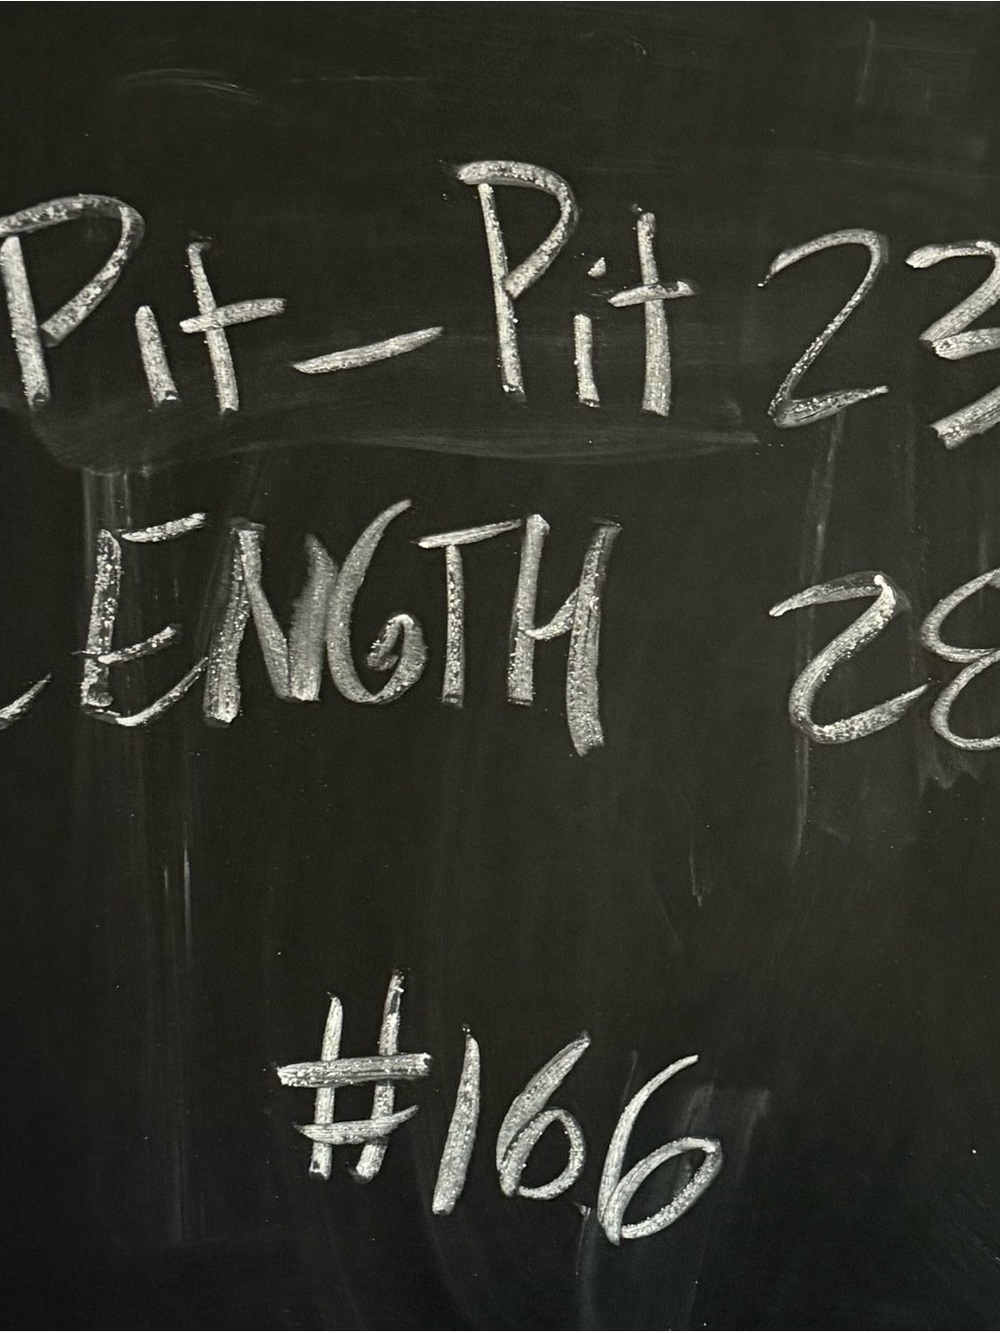 Pit-Pit 23
LENGTH 28
#166